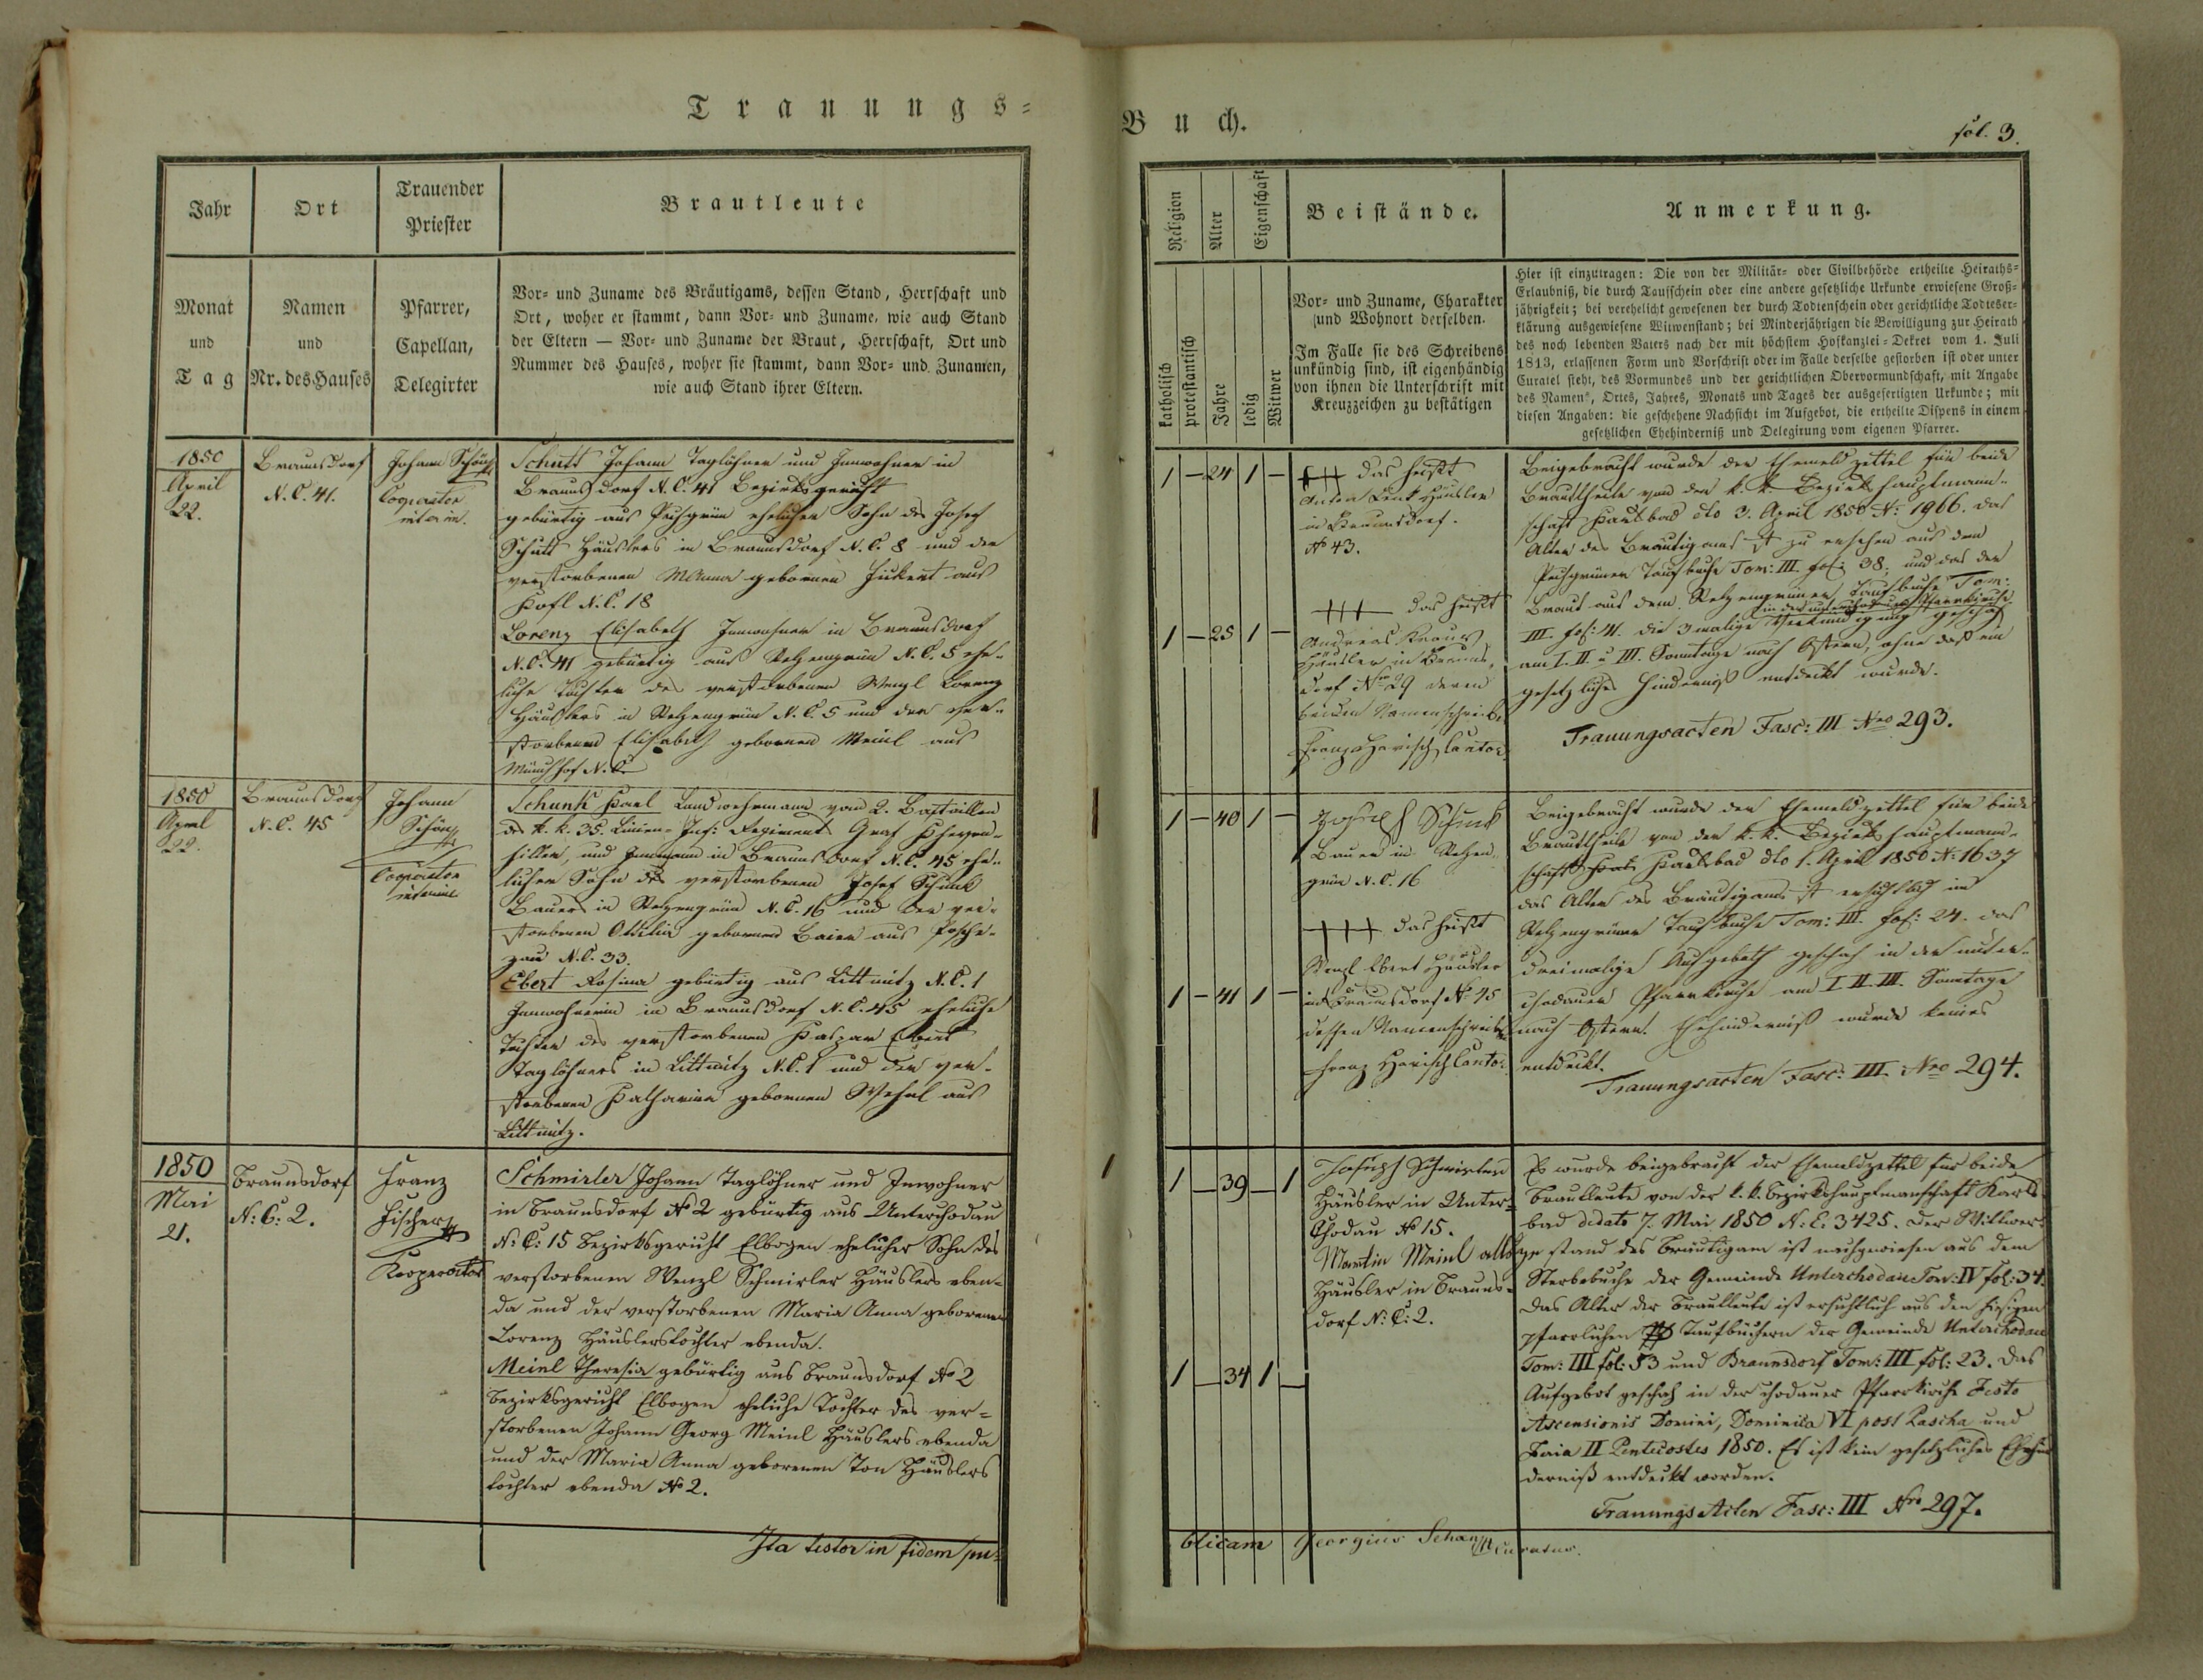 Trauungs=
Jahr
Ort
Trauender
Priester
Brautleute
Monat
und
Tag
Namen
und
Nr. des Hauses
Pfarrer,
Capellan,
Delegirter
Vor- und Zuname des Bräutigams, dessen Stand, Herrschaft und
Ort, woher er stammt, dann Vor- und Zuname, wie auch Stand
der Eltern — Vor- und Zuname der Braut, Herrschaft, Ort und
Nummer des Hauses, woher sie stammt, dann Vor- und Zunamen,
wie auch Stand ihrer Eltern.
1850
April
22.
Braunsdorf
N. C. 41.
Johann Schön
Cooperator
interim.
Schutt Johann Taglöhner und Innwohner in
Braunsdorf N. C. 41 Bezirksgericht
gebürtig aus ehelicher Sohn des Josef
Schutt Häuslers in Braunsdorf N. C. 8 und der
verstorbenen MAnna gebornen aus
Kofl N. C. 18
Lorenz Elisabeth Innwohner in Braunsdorf
N. C. 41 gebürtig aus N. C. 5 ehe-
liche Tochter des verstorbenen Wenzl Lorenz
Häuslers in N. C. 5 und der ver-
storbenen Elisabeth gebornen Meinl aus
Münchhof N. C.
1850
April
22.
Braunsdorf
N. C. 45
Johann
Schön
Cooperator
interim
Schunk Karl Landwehrmann vom 2. Bataillon
des k. k. 35. Linien-Inf: Regiments Graf Kheven-
hiller, und Innmann in Braunsdorf N. C. 45 ehe-
licher Sohn des verstorbenen Josef Schunk
Bauers in N. C. 16 und der ver-
storbenen Ottilia gebornen Baier aus Posche-
zau N. C. 33.
Ebert Rosina gebürtig aus Littmitz N. C. 1
Innwohnerin in Braunsdorf N. C. 45 eheliche
Tochter des verstorbenen Kaspar Ebert
Taglöhners in Littmitz N. C. 1 und der ver-
storbenen Katharina gebornen aus
Littmitz.
1850
Mai
21.
Braunsdorf
N: C: 2.
Franz
Fischer
Kooperator
Schmirler Johann Taglöhner und Inwohner
in Braunsdorf No 2 gebürtig aus Unterchodau
N: C: 15 Bezirksgericht Elbogen ehelicher Sohn des
verstorbenen Wenzl Schmirler Häuslers eben-
da und der verstorbenen Maria Anna geborenen
Lorenz Häuslerstochter ebenda.
Meinl Theresia gebürtig aus Braunsdorf No 2
Bezirksgericht Elbogen eheliche Tochter des ver=
storbenen Johann Georg Meinl Häuslers ebenda
und der Maria Anna geborenen Ton Häuslers
tochter ebenda No 2.
Ita testor in fidem pu=
Buch.
fol. 3.
Religion
Alter
Eigenschaft
Beistände.
Anmerkung.
katholisch
protestantisch
Jahre
ledig
Witwer
Vor- und Zuname, Charakter
und Wohnort derselben.
Im Falle sie des Schreibens
unkündig sind, ist eigenhändig
von ihnen die Unterschrift mit
Kreuzzeichen zu bestätigen
Hier ist einzutragen: Die von der Militär- oder Civilbehörde ertheilte Heiraths-
Erlaubniß, die durch Taufschein oder eine andere gesetzliche Urkunde erwiesene Groß-
jährigkeit; bei verehelicht gewesenen der durch Todtenschein oder gerichtliche Todteser-
klärung ausgewiesene Witwenstand; bei Minderjährigen die Bewilligung zur Heirath
des noch lebenden Vaters nach der mit höchstem Hofkanzlei-Dekret vom 1. Juli
1813, erlassenen Form und Vorschrift oder im Falle derselbe gestorben ist oder unter
Curatel steht, des Vormundes und der gerichtlichen Obervormundschaft, mit Angabe
des Namens, Ortes, Jahres, Monats und Tages der ausgefertigten Urkunde; mit
diesen Angaben: die geschehene Nachsicht im Aufgebot, die ertheilte Dispens in einem
gesetzlichen Ehehinderniß und Delegirung vom eigenen Pfarrer.
1 — 24 1 —
+++ das heißt
Anton Häusler
in Braunsdorf.
No 43.
+++ das heißt
1 — 25 1 —
Andreas Kraus
Häusler in Brauns-
dorf Nro 29 deren
beiden Namenschreiber
Franz Harisch Cantor
Beigebracht wurde der Ehemeldzettel für beide
Brauttheile von der k. k. Bezirkshauptmann-
schaft Karlsbad dto 3. April 1850 N: 1966. das
Alter des Bräutigams ist zu ersehen aus dem
Taufbuche Tom: III. fol: 38; und das der
Braut aus dem Taufbuche Tom:
in der unterchodauer Pfarrkirche
III. fol: 41. die 3malige Verkündigung geschah
am I. II. u III. Sonntage nach Ostern, ohne daß ein
gesetzliches Hinderniß entdeckt wurde.
Trauungsacten Fasc: III Nro 293.
1 — 40 1 —
Joseph Schunk
Bauer in
grün N. C. 16
+++ das heißt
Wenzl Ebert Häusler
1 — 41 1 —
in Braunsdorf No 45
dessen Namenschreiber
Franz Harisch Cantor
Beigebracht wurde der Ehemeldzettel für beide
Brauttheile von der k. k. Bezirkshauptmann-
schaft Karlsbad dto 1. April 1850 N: 1637
das Alter des Bräutigams ist ersichtlich im
Taufbuche Tom: III. fol: 24. das
dreimalige Aufgeboth geschah in der unter-
chodauer Pfarrkirche am I. II. III. Sonntage
nach Ostern. Ehehinderniß wurde keines
entdeckt.
Trauungsacten Fasc: III. Nro 294.
1 — 39 — 1
Joseph Schmirler
Häusler in Unter=
Chodau No 15.
Martin Meinl als Zge
Häusler in Brauns-
dorf N: C: 2.
1 — 34 1 —
Es wurde beigebracht der Ehemeldzettel für beide
Brautleute von der k. k. Bezirkshauptmannschaft Karls-
bad dedato 7. Mai 1850 N: E: 3425. Der Wittwer-
stand des Bräutigam ist nachgewiesen aus dem
Sterbebuche der Gemeinde Unterchodau Tom: IV fol: 34.
Das Alter der Brautleute ist ersichtlich aus den hiesigen
pfarrlichen Taufbüchern der Gemeinde Unterchodau
Tom: III fol: 53 und Braunsdorf Tom: III fol: 23. Das
Aufgebot geschah in der chodauer Pfarrkirche Festo
Ascensionis Domini, Dominica VI post Pascha und
Feria II Pentecostes 1850. Es ist kein gesetzliches Ehehin
derniß entdeckt worden.
Trauungs Acten Fasc: III Nro 297.
blicam Georgius Curatus.